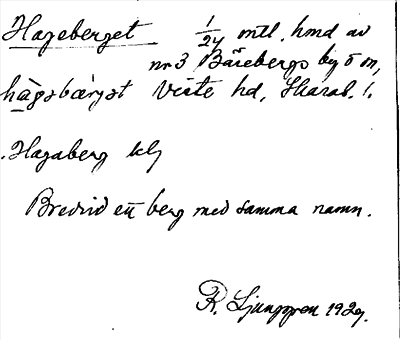 Hageberget 1/24 mtl. hmd av
nr 3 Bärebergs by o m,
hàgəbærjət Viste hd, Skarab. l.
Hagaberg kbj
Bredvid ett berg med samma namn.
R. Ljunggren 1929.